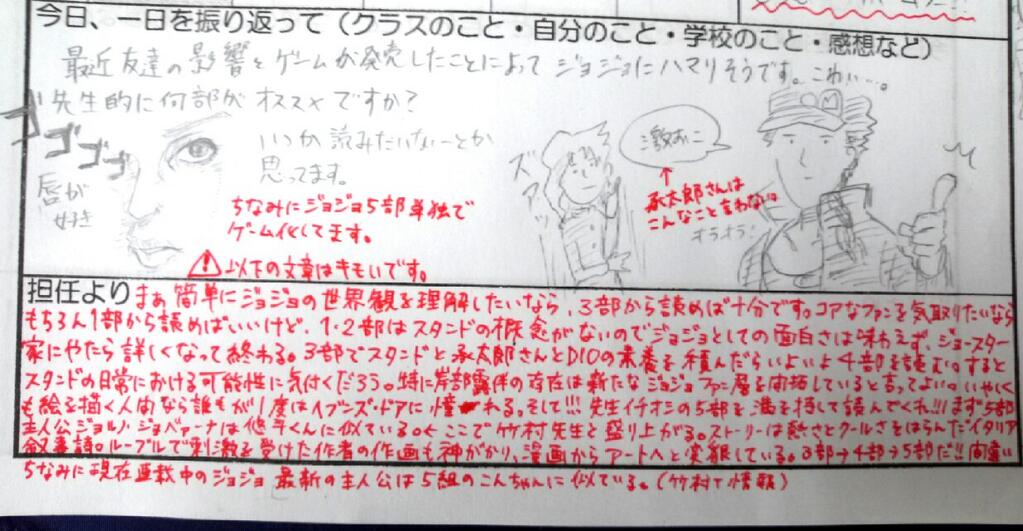 今日、一日を振り返って（クラスのこと・自分のこと・学校のこと・感想など）
最近友達の影響とゲームが発売したことによってジョジョにハマりそうです。こわい…。
先生的に何部がオススメですか？
いつか読みたいなーとか
思ってます。
ゴゴゴゴ
唇が
好き
ズアッ
激おこ
承太郎さんは
こんなこと言わない。
オラオラ！
ちなみにジョジョ5部単独で
ゲーム化してます。
以下の文章はキモいです。
担任より
まぁ簡単にジョジョの世界観を理解したいなら、3部から読めば十分です。コアなファンを気取りたいなら
もちろん1部から読めばいいけど、1・2部はスタンドの概念がないのでジョジョとしての面白さは味わえず、ジョースター
家にやたら詳しくなって終わる。3部でスタンドと承太郎さんとDIOの素養を積んだらいよいよ4部を読む。すると
スタンドの日常における可能性に気付くだろう。特に岸部露伴の存在は新たなジョジョファン層を開拓していると言ってよい。いやしく
も絵を描く人間なら誰もが1度はヘブンズ・ドアに憧れる。そして!!! 先生イチオシの5部を満を持して読んでくれ!!! まず5部
主人公ジョルノ・ジョバァーナは悠斗くんに似ている。←ここで竹村先生と盛り上がる。ストーリーは熱さとクールさをはらんだイタリア
叙事詩。ルーブルで刺激を受けた作者の作画も神がかり、漫画からアートへと実験している。3部→4部→5部だ!! 間違い
ちなみに現在連載中のジョジョ最新の主人公は5組のこんちゃんに似ている。（竹村T情報）